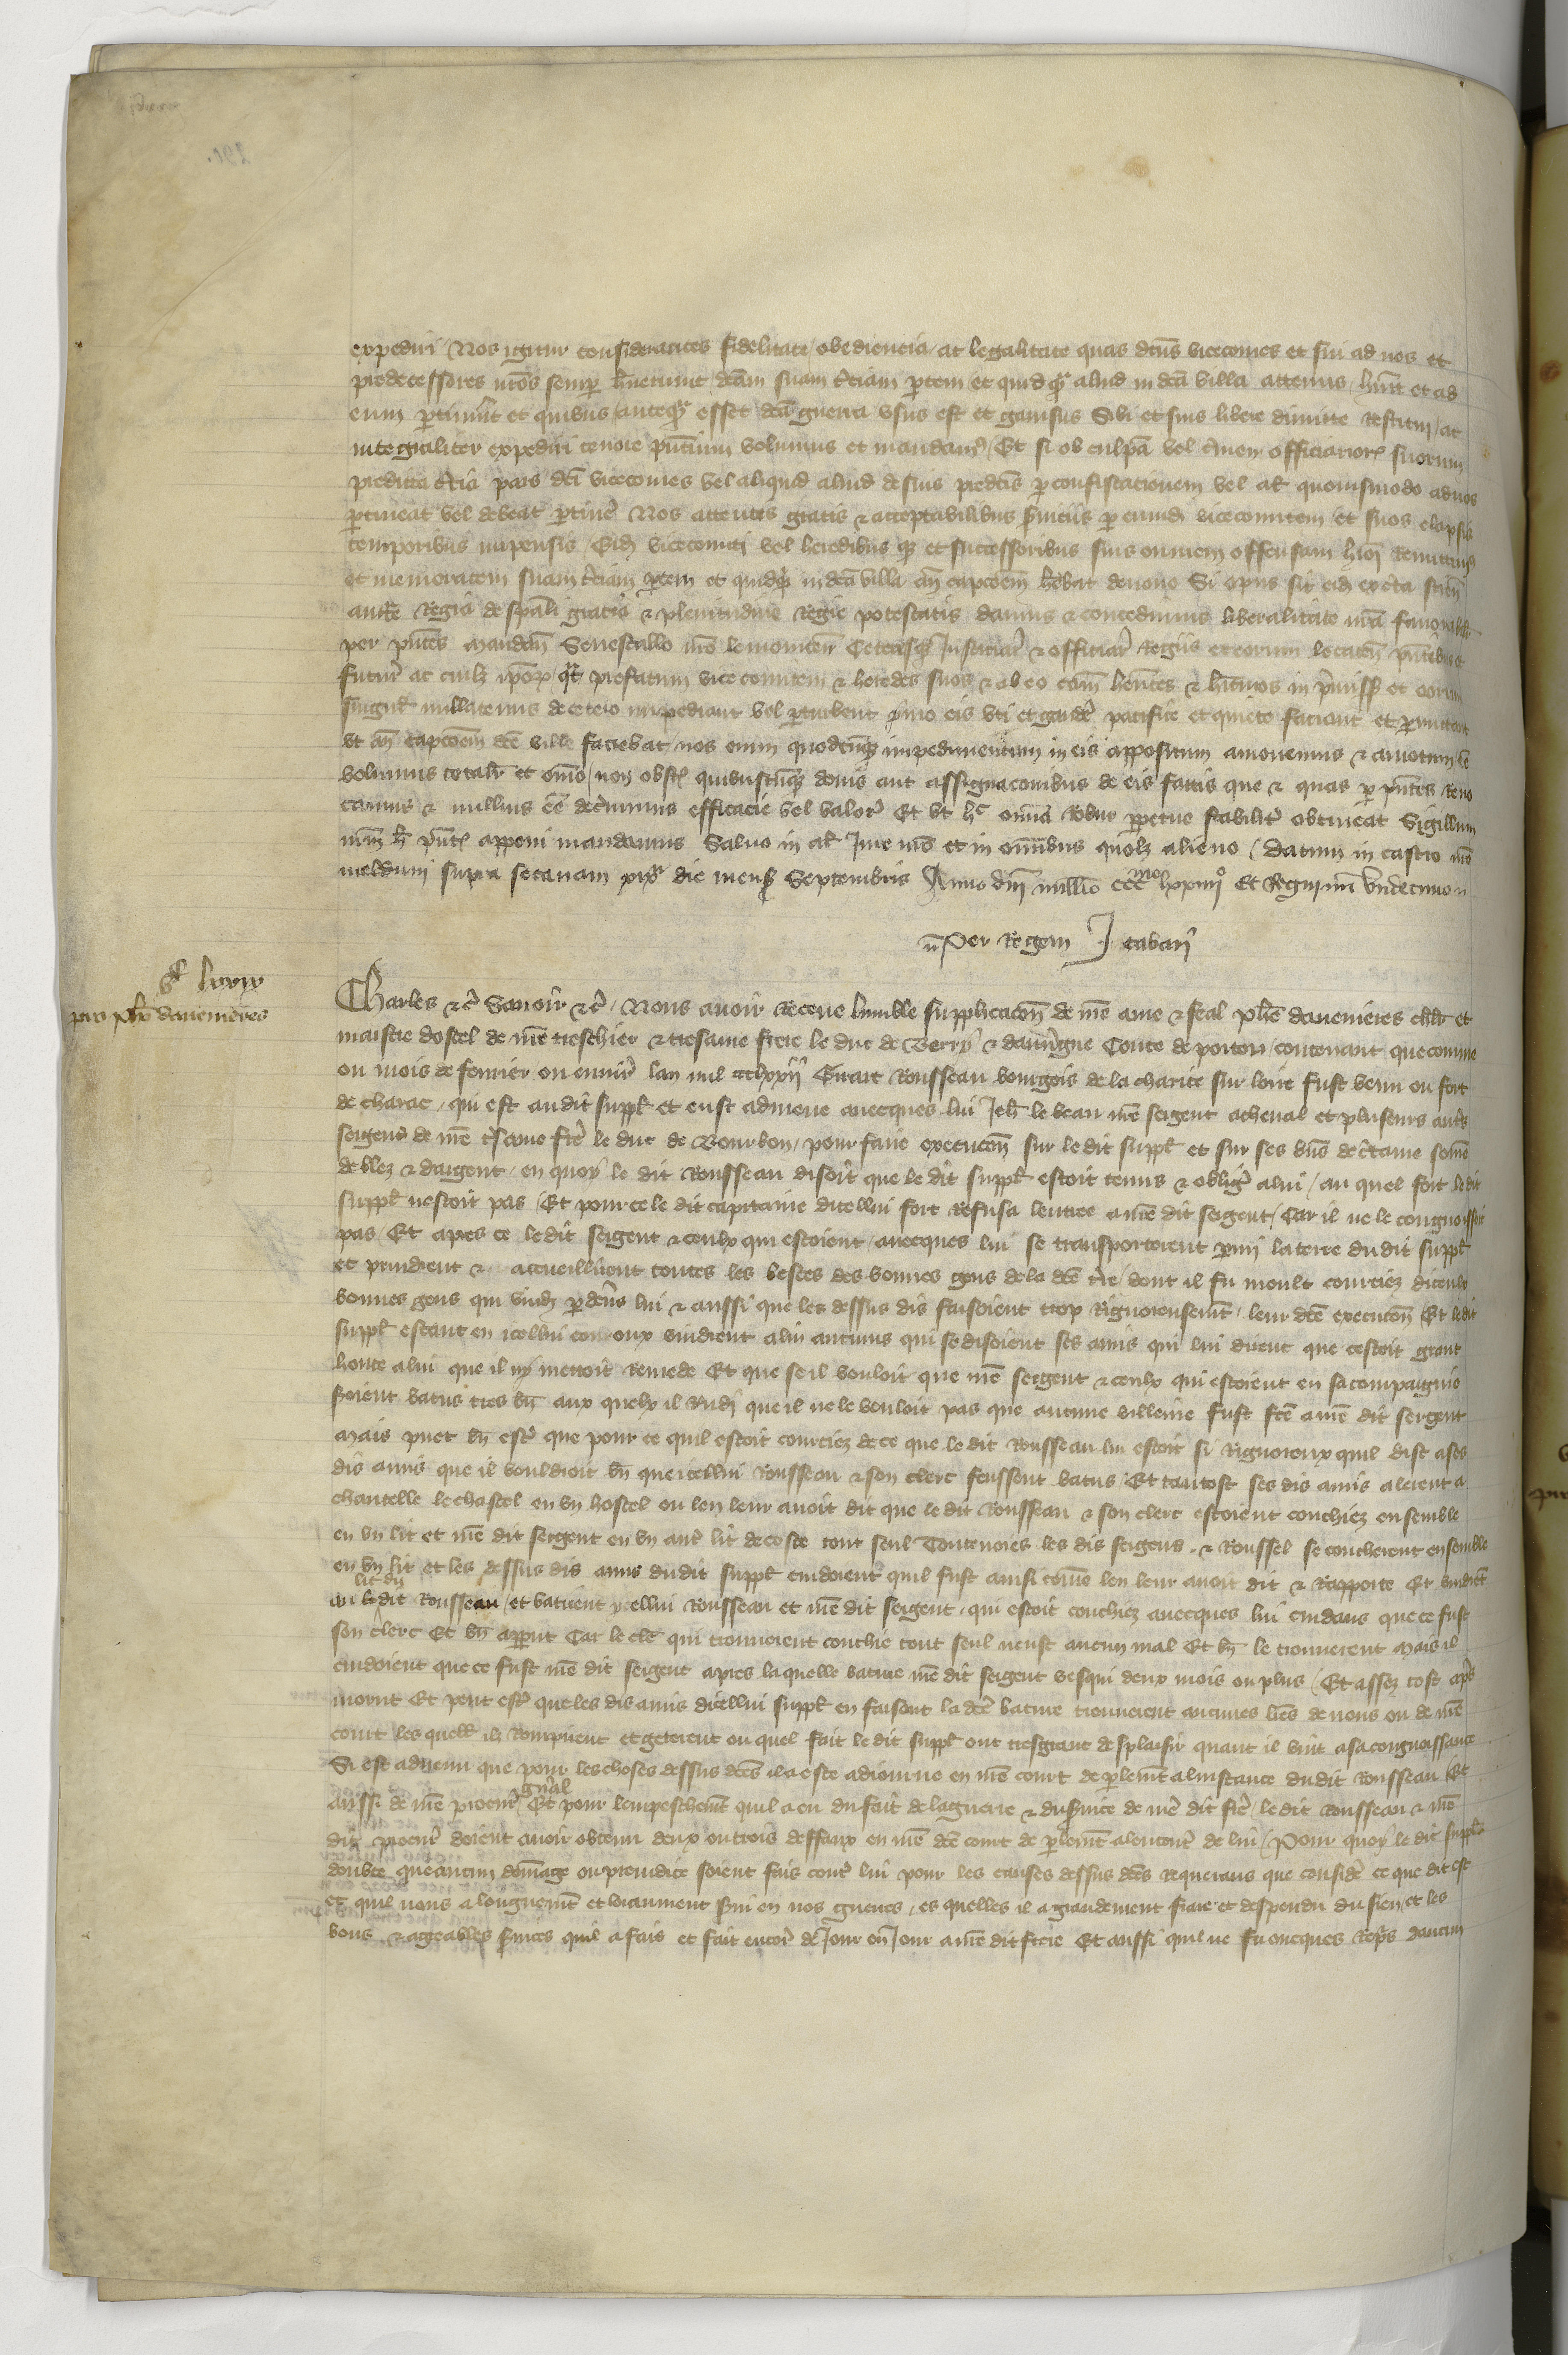 expediri Nos igitur consideracones fidelitate / obediencia / ac legalitate quas dcus vicecomes et sui ad nos et
predecessores nros semper huerunt dcam suam terciam partem et quidquam aliud in dca villa attenus hunt et ad
eum pertinunt et quibus antequam esset dca guerra usus est et gavisus Sibi et suis libere dimitte restitui / ac
integraliter expediri tenore pncium volumus et mandam9 / Et si ob culpa vel crimen officiariorum suorum
predicta tercia pars dci vicecomes vel aliquid aliud de suis predcis per confiscationem vel al quovismodo ad nos
pertineat vel debeat pertinere Nos attentis gratis & acceptabilibus serviciis per eumd vicecomitem et suos elapsis
temporibus impensis / Eid vicecomiti vel heredibus et successoribus suis omnem offensam hmoi remittim9
et memoratam suam terciam partem et quidquid in dca villa an capcoem hebat denovo Si opus sit eid ex certa scien
aucte Regia de spali gracia & plenitudine Regie potestatis damus & concedimus liberalitate nra favorabili
per pntes Mandam Senescallo nro lemovicen Ceterisque Justiciar & officiar Regiis et eorum locaten pntibus &
futur ac cuilz ipor qat prefatum vicecomitem & heredes suos & ab eo cam hentes & hituros in premiss et eorum
singul nullatenus de cetero impediant vel perturbent ymo eis uti et gaude pacifice et quiete faciant et permittant
ut an capcoem dce ville faciebat / nos enim quodcunque impedimentum in eis appositum amovemus & amotum ee
volumus total et omo / non obst quibuscunque donis aut assignaconibus de eis factis que & quas per pntes revo
camus & nullius ee decernimus efficacie vel valor Et ut hec omnia robur perpetue stabilit obtineat Sigillum
nrm h pnt apponi mandamus Salvo in al Jure nro et in omnibus quolz alieno / Datum in castro nro
meldun supra secanam die mens Septembris Anno dni millio ccc mo lxxiiijo Et Regni nri undecimo
Per Regem J Tabari
lxxix
pro phe davenieres
Charles &c Savoir &c / Nous avoir Receue lumble supplicacon de nre ame & feal phe davenieres chlr et
maistre dostel de nre treschier & tresame frere le duc de Berry & dauvgne Conte de poitou / contenant que comme
ou mois de fevrier ou envir lan mil ccclxxij Girart Rousseau bourgois de la charite sur loire fust venu ou fort
de charac / qui est au dit suppl et eust admene avecques lui Jeh le beau nre sergent a cheval et plusieurs autr
sergens de nre tscame fre le duc de Bourbon / pour faire execucon sur le dit suppl et sur ses bns de ctaine some
de blez & dargent / en quoy le dit Rousseau disoit que le dit suppl estoit tenus & oblige a lui / au quel fort le dit
suppl nestoit pas / Et pour ce le dit capitaine dicellui fort Refusa lentree a nre dit sergent / Car il ne le congnoissoit
pas / Et apres ce le dit sergent & ceulx qui estoient / avecques lui se transporterent parmi la terre du dit suppl
et prindrent & accueillirent toutes les bestes des bonnes gens de la dce tre / dont il fu moult courciez / diceulx
bonnes gens qui vind par devs lui & aussi que les dessus dis faisoient trop Riguoreusemt / leur dce execucon Et le dit
suppl estant en icellui couroux vindrent a lui aucuns qui se disoient ses amis qui lui dirent que cestoit grant
honte a lui que il ny mettoit Remede Et que se il vouloit que nre sergent & ceulx qui estoient en sa compaignie
seroient batus tres bn aux quelx il Rndi que il ne le vouloit pas que aucune villenie fust fce a nre dit sergent
Mais puet bn estr que pour ce quil estoit courciez de ce que le dit Rousseau lui estoit si Riguoreux quil dist a ses
dis amis que il vouldroit bn que icellui Rousseau & son clerc feussent batus Et tantost ses dis amis alerent a
chantelle le chastel en un hostel ou len leur avoit dit que le dit Rousseau & son clerc estoient couchiez ensemble
en un lit et nre dit sergent en un autr lit de coste tout seul Toutevoies les dis sergens & Roussel se coucherent ensemble
en un lit et les dessus dis amis du dit suppl cuidoient quil fust ainsi come len leur avoit dit & Rapporte Et vindret
au lit du dit Rousseau / et batirent ycellui Rousseau et nre dit sergent / qui estoit couchiez avecques lui cuidans que ce fust
son clerc Et bn apparut Car le clec qui trouverent couchie tout seul neust aucun mal Et bn le trouverent Mais il
cuidoient que ce fust nre dit sergent apres la quelle bature nre dit sergent vesqui deux mois ou plus / Et assez tost apres
morut Et peut estr que les dis amis dicellui suppl en faisant la dce bature trouverent aucunes lres de nous ou de nre
court les quell ilz Rompirent et geterent ou quel fait le dit suppl ont tresgrant desplaisir quant il vint a sa congnoissance
Si est advenu que pour les choses dessus dces il a este adjourne en nre court de parlemt a linstance du dit Rousseau Et
aussi de nre procur gnal Et pour lempeschemt quil a eu du fait de la guerre & du service de nre dit fre / le dit Rousseau & nre
dit procur doient avoir obtenu deux ou trois deffaux en nre dce court de parlemt alencontr de lui / Pour quoy le dit suppl
doubte que aucun domage ou preiudice soient fais contr lui pour les causes dessus dces Requerans que consider ce que dit est
et quil nous a longuemt et loiaument servi en nos guerres / es quelles il a grandement fraie et despendu du sien / et les
bons & agreables services quil a fais et fait encor de Jour en Jour a nre dit frere Et aussi quil ne fu oncques Repris daucun